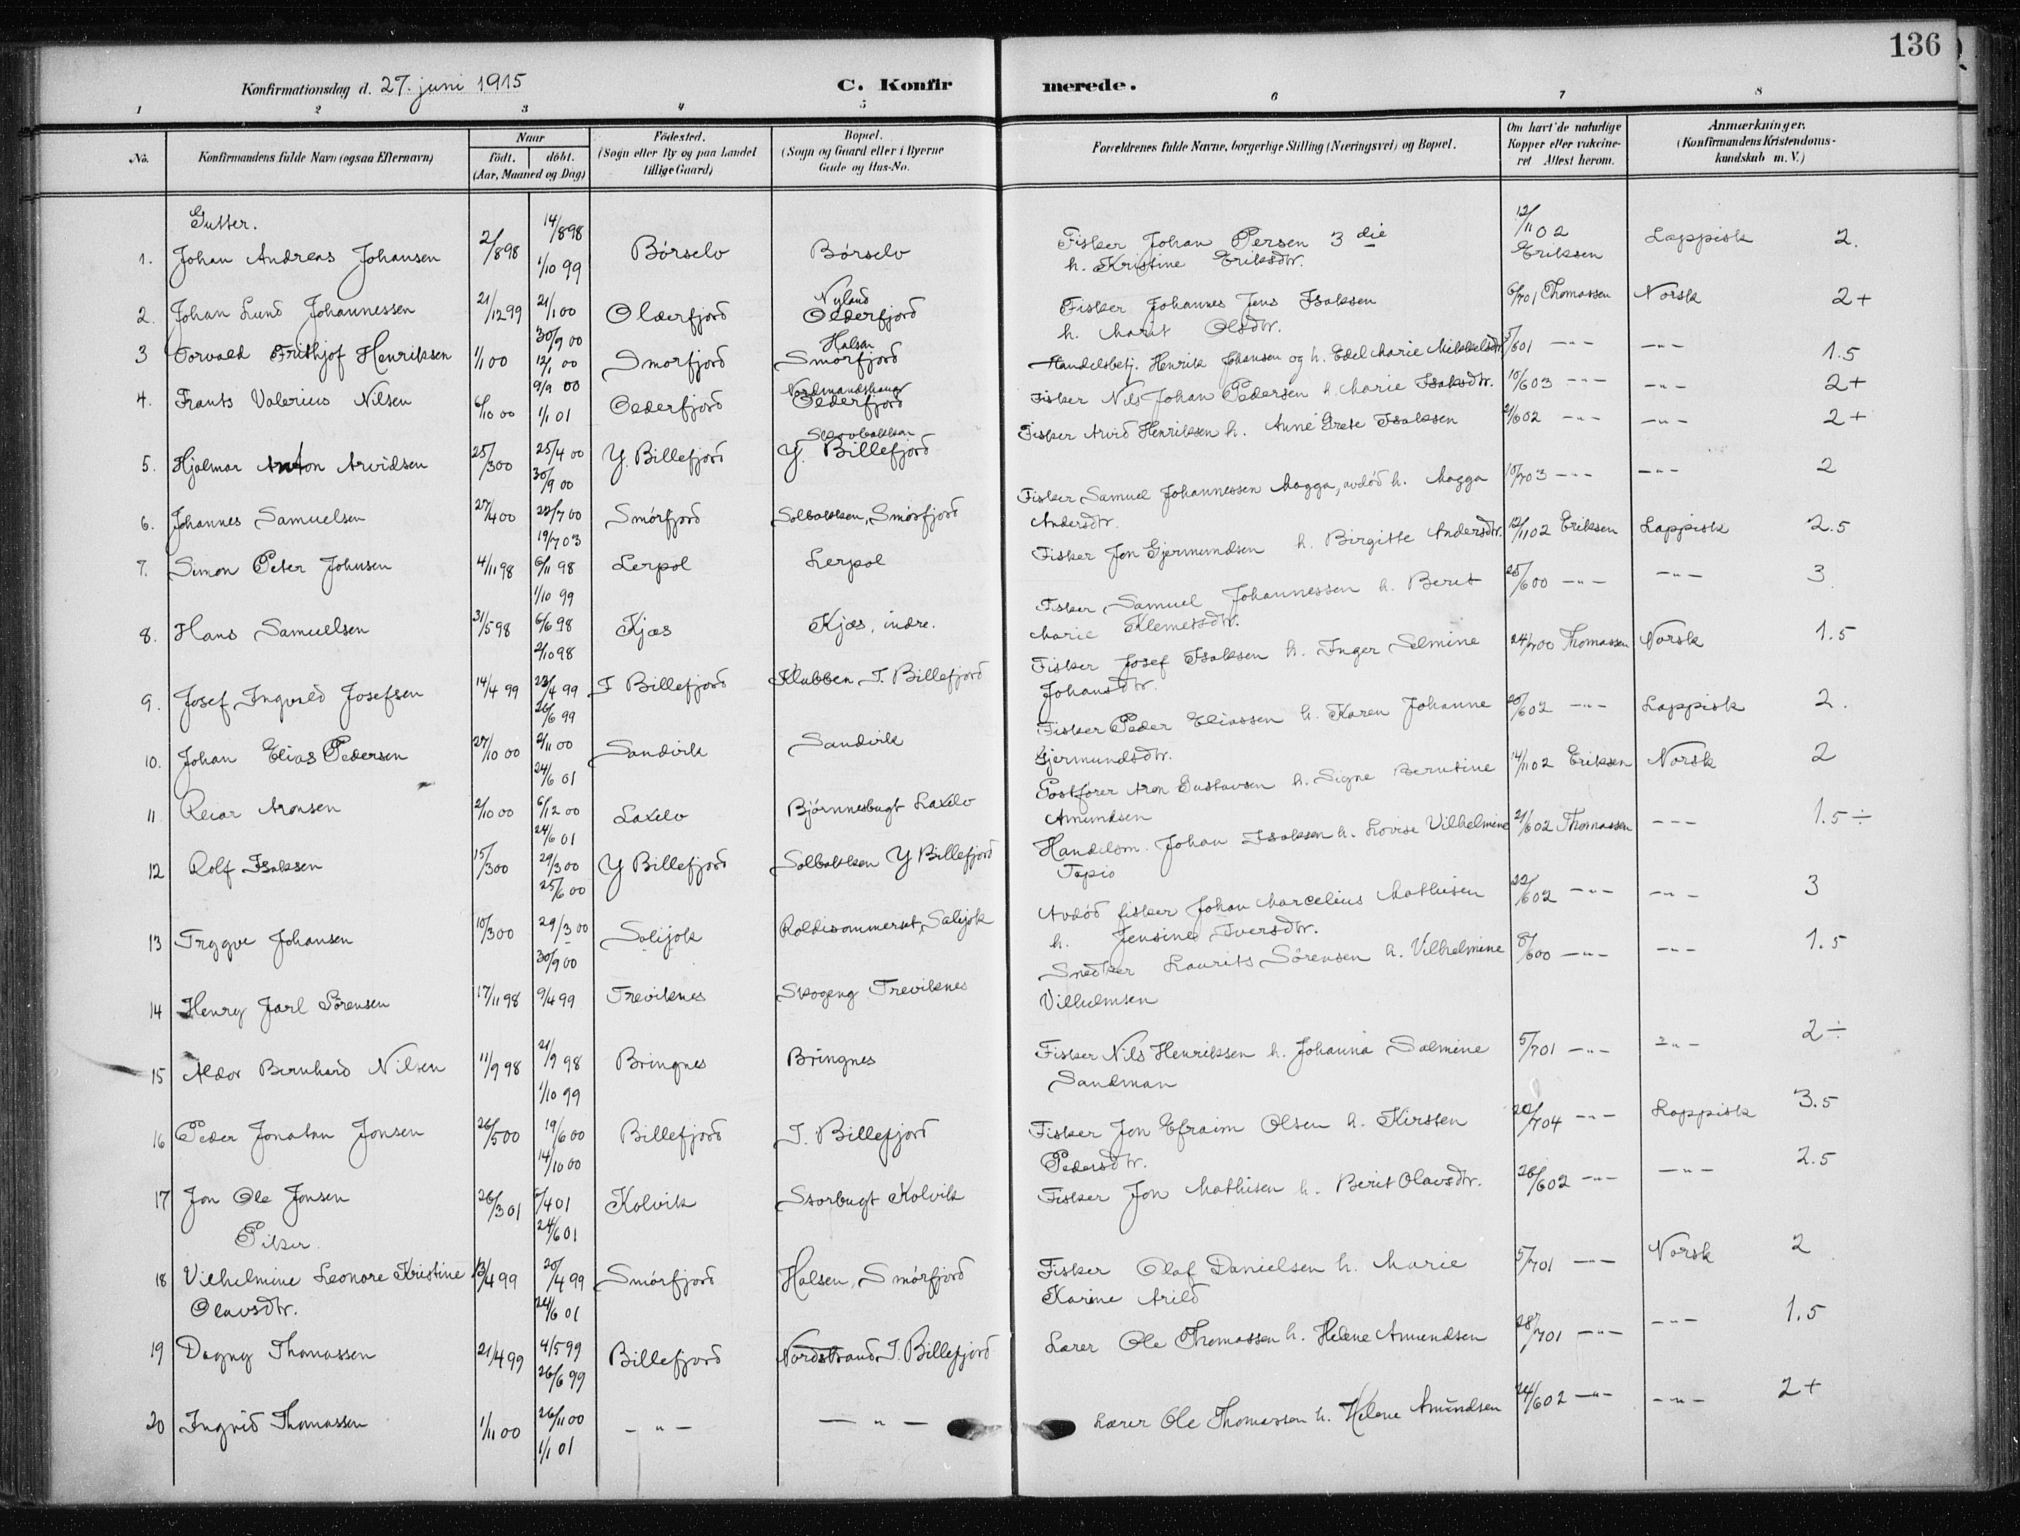 136
Konfirmationsdag d. 27. juni 1915
C. Konfirmerede.
1 2 3 4 5 6 7 8
No. Konfirmandens fulde Navn (ogsaa Efternavn) Naar født. døbt. (Aar, Maaned og Dag) Fødested. (Sogn eller By og paa Landet tillige Gaard) Bopæl. (Sogn og Gaard eller i Byerne Gade og Hus-No. Forældrenes fulde Navne, borgerlige Stilling (Næringsvei) og Bopæl. Om havt de naturlige Kopper eller vakcineret Attest herom. Anmærkninger. (Konfirmandens Kristendomskundskab m. V.)
Gutter.
1. Johan Andreas Johansen 2/898 14/898 1/10 99 Børselv Børselv Fisker Johan Persen 3 die h. Kristine Eriksdtr. 12/11 02 Eriksen Lappisk 2.
2. Johan Lund Johannessen 21/12 99 21/1 00 30/9 00 Olderfjord Nyland Olderfjord Fisker Johannes Jens Isaksen h. Marit Olsdtr. 6/701 Thomassen Norsk 2+
3 Torvald Frithjof Henriksen 1/1 00 12/1 00 9/9 00 Smorfjord Halsen Smorfjord Handelsbetj. Henrik Johansen og h. Edel Marie Mikkelsdtr. 5/601 —"— —"— 1.5
4. Frants Valerius Nilsen 6/10 00 1/1 01 Olderfjord Nordmandshaug Olderfjord Fisker Nils Johan Pedersen h. Marie Isaksdtr. 10/603 —"— —"— 2+
5. Hjalmar Anton Arvidsen 25/300 25/4 00 30/9 00 Y. Billefjord Y. Billefjord Fisker Arvid Henriksen h. Anne Grete Isaksen 21/602 —"— —"— 2+
6. Johannes Samuelsen 27/400 22/7 00 19/7 03 Smørfjord Solbakken, Smørfjord Fisker Samuel Johannessen Magga, avdød h. Magga Andersdtr. 10/703 —"— —"— 2
7. Simon Peter Johnsen 4/11 98 6/11 98 1/10 99 Lerpol Lerpol Fisker Jon Gjermundsen h. Birgitte Andersdtr. 12/1102 Eriksen Lappisk 2.5
8. Hans Samuelsen 31/5 98 6/6 98 2/10 98 Kjæs Kjæs, indre. Fisker Samuel Johannessen h. Berit Marie Klemetsdtr. 25/600 —"— —"— 3
9. Josef Ingvald Josefsen 14/4 99 23/4 99 26/6 99 I Billefjord Klubben, I. Billefjord Fisker Josef Isaksen h. Inger Selmine Johansdtr. 24/700 Thomassen Norsk 1.5
10. Johan Elias Pedersen 27/10 00 2/11 00 24/6 01 Sandvik Sandvik Fisker Peder Eliassen h. Karen Johanne Gjermundsdtr. 20/602 —"— Lappisk 2.
11 Reiar Aronsen 2/10 00 6/12 00 24/6 01 Laxelv Bjørnnesbugt Laxelv Postfører Aron Gustavsen h. Signe Berntine Amundsen 14/1102 Eriksen Norsk 2
12 Rolf Isaksen 15/300 29/3 00 25/6 00 Y Billefjord Solbakken Y Billefjord Handelsm. Johan Isaksen h. Lovise Vilhelmine Tapio 21/602 Thomassen —"— 1.5 ÷
13 Trygve Johansen 10/300 29/3 00 30/9 00 Salijok Roldisommerset, Salijok Avdød fisker Johan Marcelius Mathisen h. Jensine Iversdtr. 22/602 —"— —"— 3
14 Henry Jarl Sørensen 17/11 98 9/4 99 Treviknes Skogeng Treviknes Snedker Laurits Sørensen h. Vilhelmine Vilhelmsen 8/600 —"— —"— 1.5
15 Aldor Bernhard Nilsen 11/9 98 21/9 98 1/10 99 Bringnes Bringnes Fisker Nils Henriksen h. Johanna Salmine Sandman 5/701 —"— —"— 2 ÷
16 Peder Jonatan Jonsen 26/500 19/6 00 14/10 00 Billefjord I. Billefjord Fisker Jon Efraim Olsen h. Kirsten Pedersdtr. 20/704 —"— Lappisk 3.5
17 Jon Ole Jonsen 26/3 01 5/4 01 24/6 01 Kolvik Storbugt Kolvik Fisker Jon Mathisen h. Berit Olavsdtr. 26/602 —"— —"— 2.5
Piker.
18 Vilhelmine Leonore Kristine Olavsdtr. 13/4 99 20/4 99 24/6 01 Smørfjord Halsen, Smørfjord Fisker Olaf Danielsen h. Marie Karine Arild 5/701 —"— Norsk 2
19 Dagny Thomassen 21/4 99 4/5 99 26/6 99 Billefjord Nordstrand I. Billefjord Lærer Ole Thomassen h. Helene Amundsen 28/701 —"— —"— 1.5
20 Ingrid Thomassen 1/11 00 26/11 00 1/1 01 —"— —"— Lærer Ole Thomassen h. Helene Amundsen 24/602 —"— —"— 2+